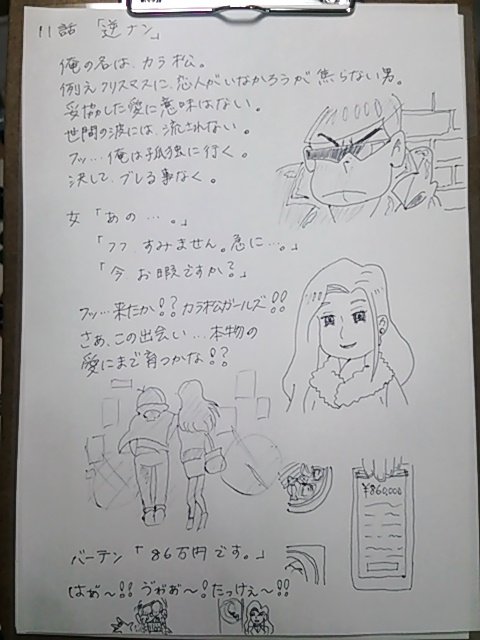 11話 「逆ナン」
俺の名は、カラ松。
例えクリスマスに、恋人がいなかろうが焦らない男。
妥協した愛に意味はない。
世間の波には、流されない。
フッ…俺は孤独に行く。
決して、ブレる事なく。
女「あの…。」
「フフ すみません。急に…。」
「今 お暇ですか?」
フッ…来たか!?カラ松ガールズ!!
さあ、この出会い…本物の
愛にまで育つかな!?
¥860,000
バーテン「86万円です。」
はあ〜!!うおお〜!たっけぇ〜!!